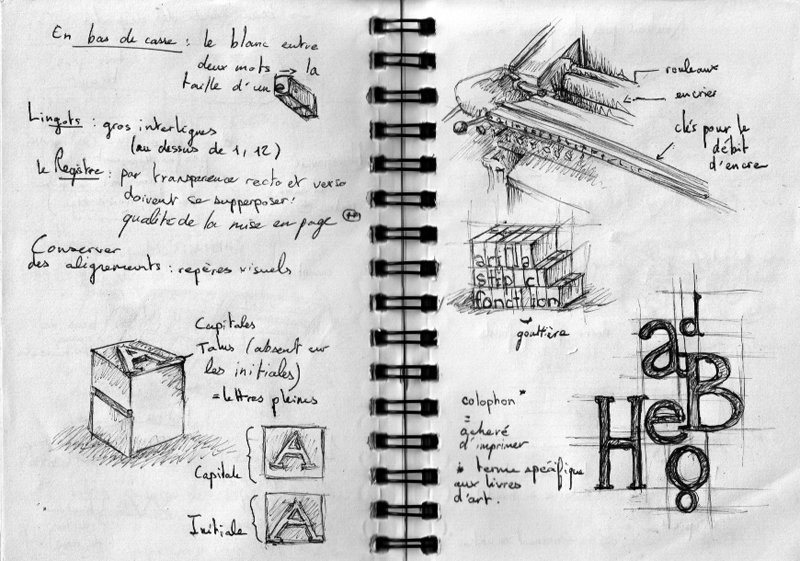 En bas de casse : le blanc entre
deux mots → la
taille d'un e
Lingots : gros interlignes
(au dessus de 1, 12)
le Registre : par transparence recto et verso
doivent se supperposer :
qualité de la mise en page
Conserver
des alignements : repères visuels
Capitales
Talus (absent sur
les initiales)
= lettres pleines
A
Capitale
A
Initiale
A
rouleaux
encrier
clés pour le
débit
d'encre
fonction
gouttière
colophon *
=
achevé
d'imprimer
* terme spécifique
aux livres
d'art.
d
a
B
H
e
g